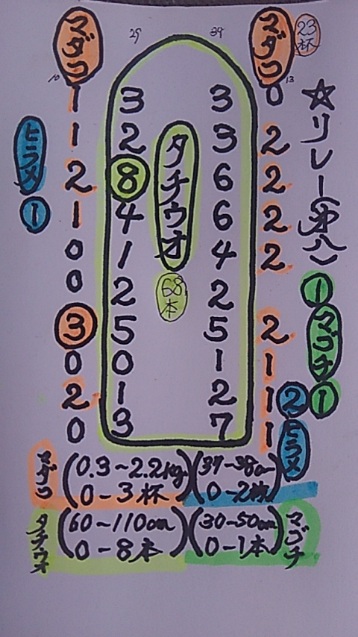 マダコ
10
29
39
マダコ
13
23杯
☆リレー(第八)
1 3 3 0
1 2 3 2
2 8 6 2
1 4 6 2
0 1 4 2
0 2 2
3 5 5 2
0 0 1 1
2 1 2 1
0 3 7 1
タチウオ
68本
ヒラメ
1
1
マゴチ
1
2
ヒラメ
マダコ
(0.3~2.2kg) (37~38cm)
0-3杯 0-2枚
タチウオ
(60~110cm) (30~50cm)
0-8本 0-1本
マゴチ